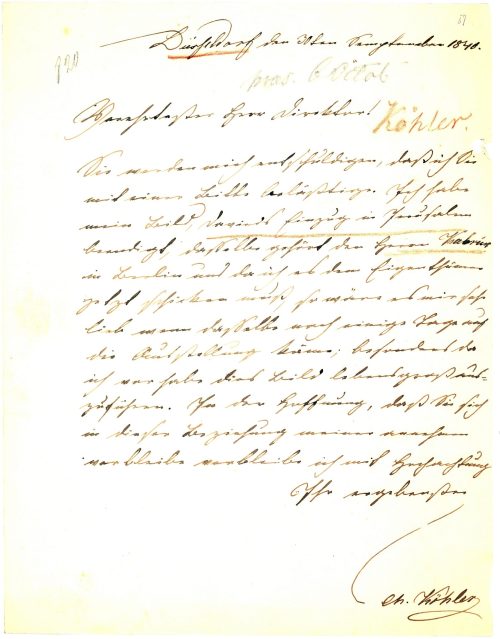 Düsseldorf den 30ten Semptember 1840.
präs. 6 Octob
Verehrtester Herr Direktor!
Köhler.
Sie werden mich entschuldigen, daß ich Sie
mit einer Bitte belästige. Ich habe
mein Bild, Davids Einzug in Jerusalem
beendigt, dasselbe gehört den Herrn
in Berlin und da ich es dem Eigenthümer
jetzt schicken muß so wäre es mir sehr
lieb wenn dasselbe noch einige Tage auf
die Ausstellung käme; besonders da
ich vorhabe dies Bild lebensgroß aus-
zuführen. In der Hoffnung, daß Sie sich
in dieser Beziehung meiner annehmen
verbleibe ich mit Hochachtung
Ihr ergebenster
Ch. Köhler